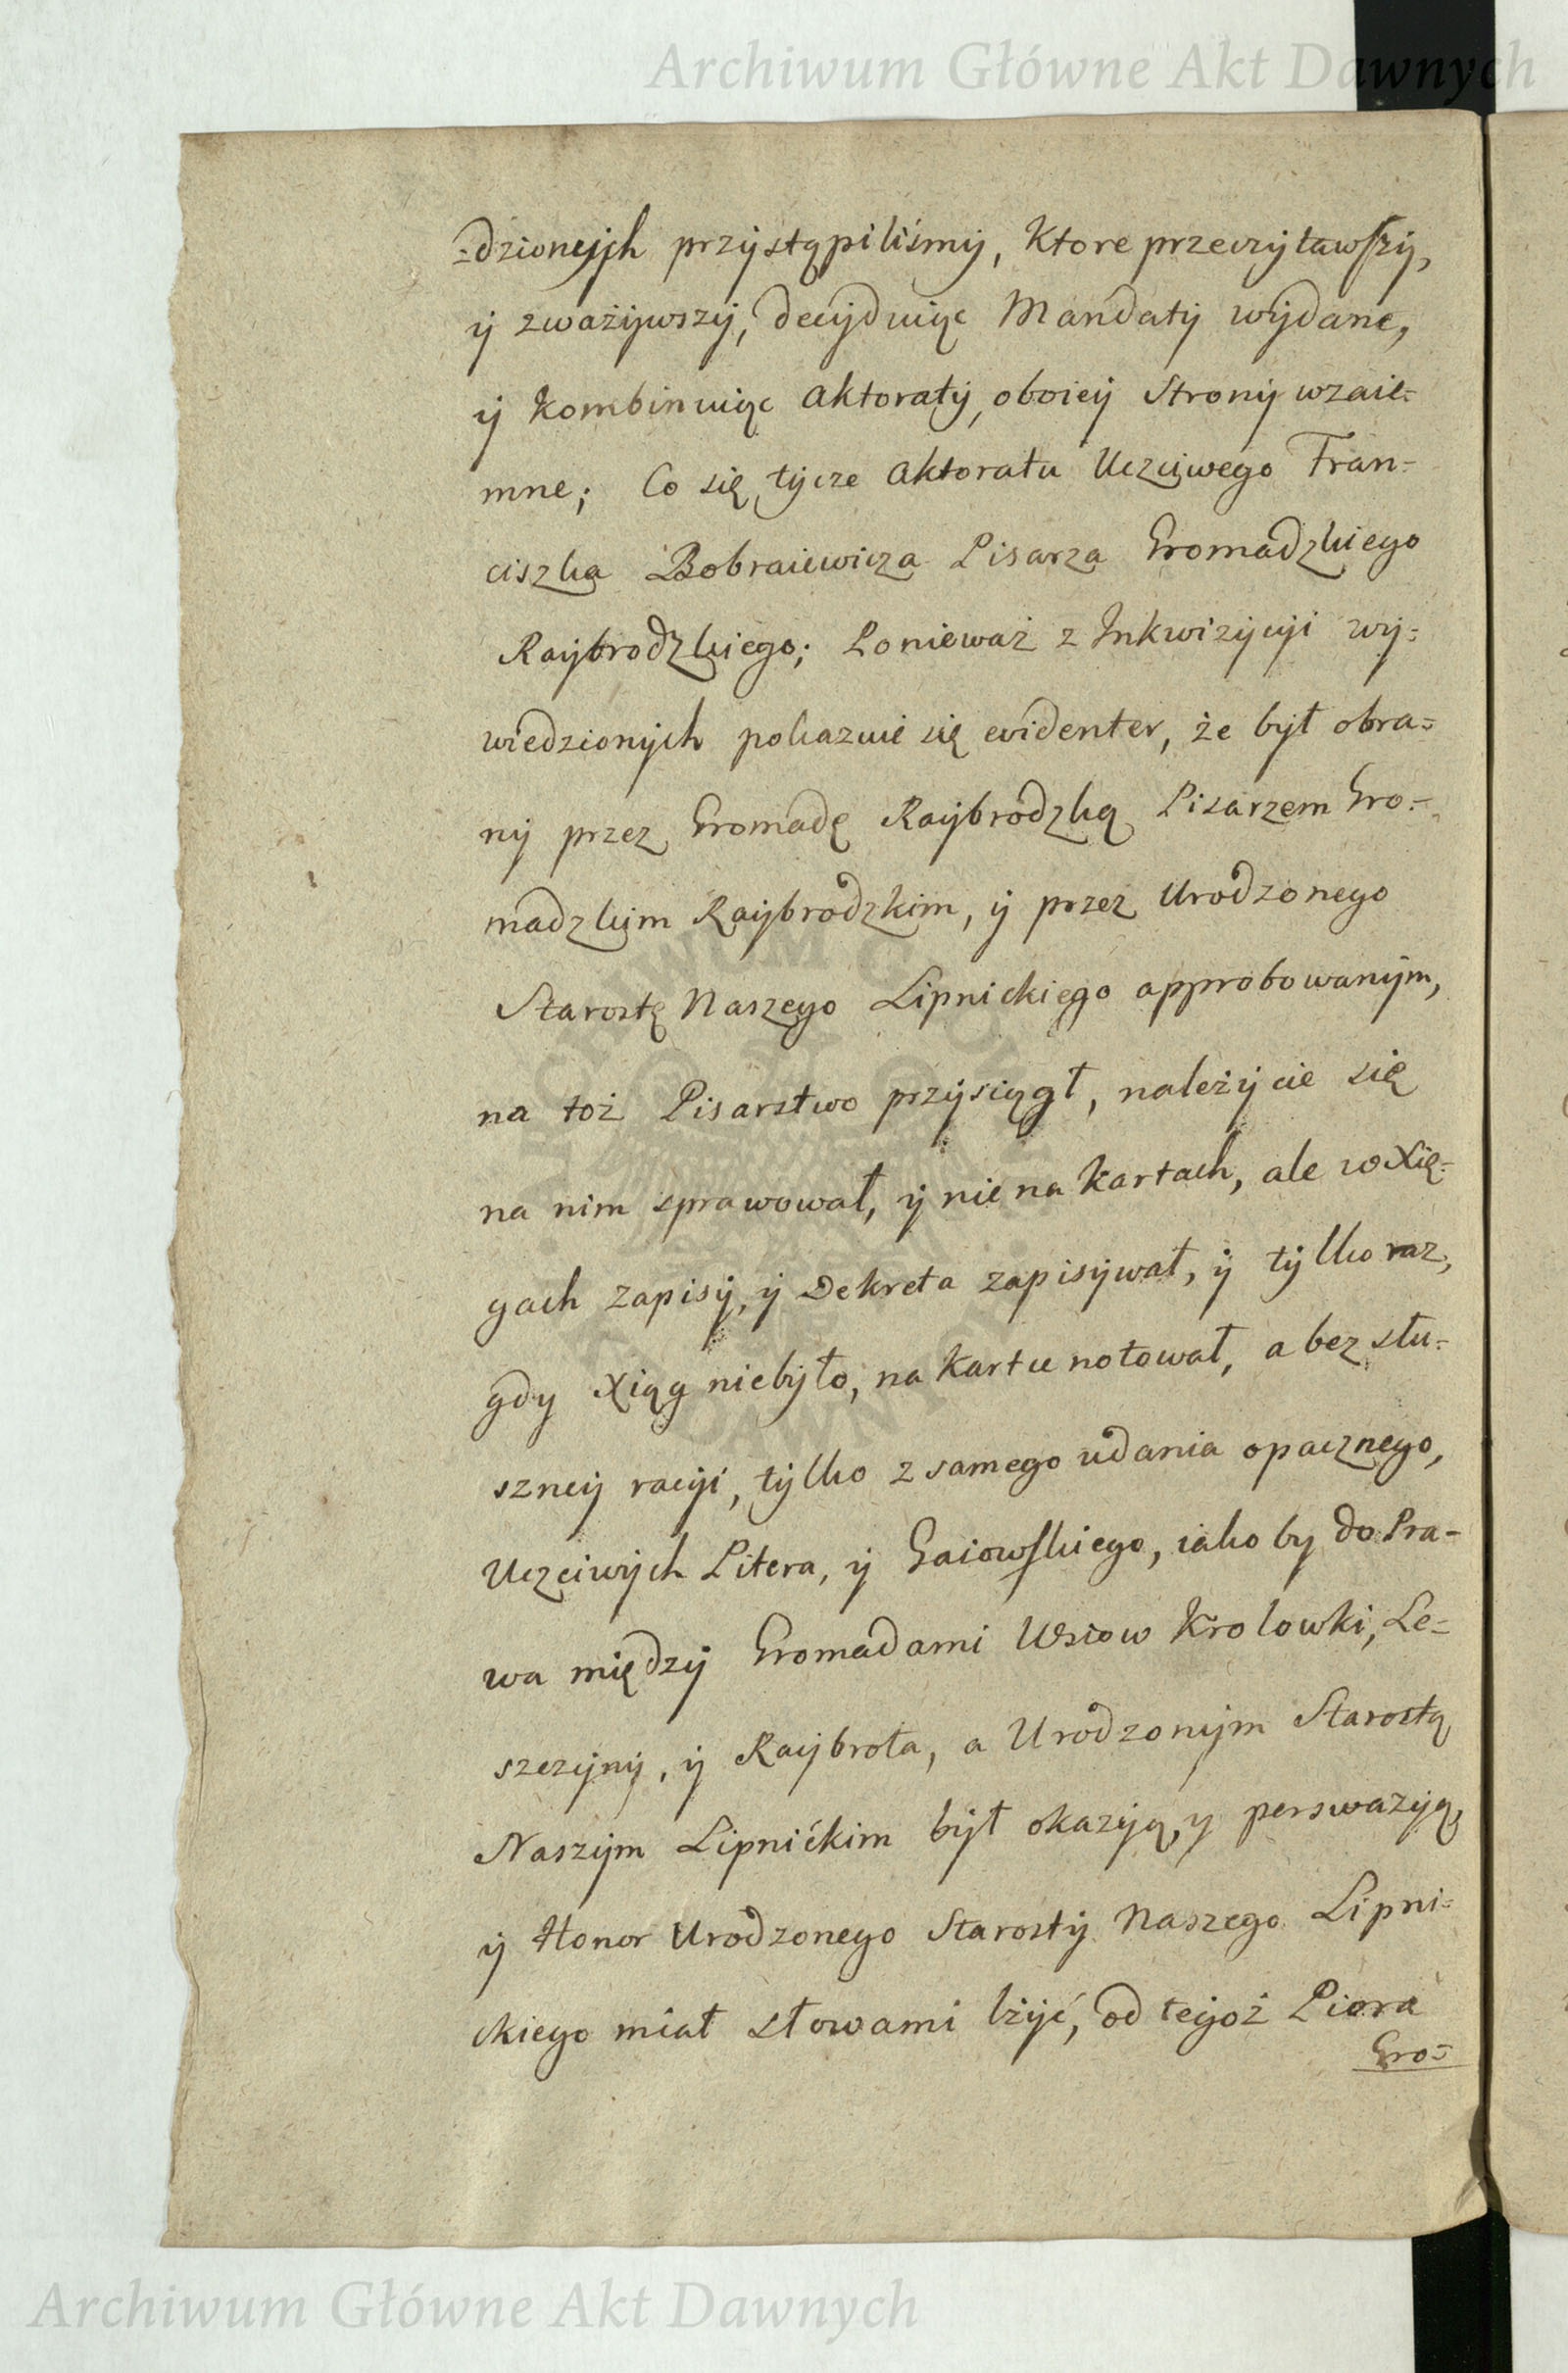 Archiwum Główne Akt Dawnych
=dzionych przystąpiliśmy, Ktore przeczytawszy,
y zważywszy, decyduiąc Mandaty wydane,
y Kombinuiąc Aktoraty, oboiey Strony wzaie=
mne; Co się tycze Aktoratu Uczciwego Fran=
ciszka Bobraiewicza Pisarza Gromadzkiego
Raybrodzkiego; Ponieważ z Inkwizycyi wy=
wiedzionych pokazuie się evidenter, że był obra=
ny przez Gromadę Raybrodzką Pisarzem Gro=
madzkim Raybrodzkim, y przez Urodzonego
Starostę Naszego Lipnickiego approbowanym,
na toż Pisarstwo przysiągł, należycie się
na nim sprawował, y nie na Kartach, ale w Xię=
gach zapisy, y Dekreta zapisywał, y tylko raz,
gdy Xiąg niebyło, na Karcie notował, a bez słu=
szney racyi, tylko z samego udania opacznego,
Uczciwych Pitera, y Gaiowskiego, iako by do Pra=
wa między Gromadami Wsiow Krolowki, Le=
szczyny, y Raybrota, a Urodzonym Starostą
Naszym Lipnickim był okazyą, y perswazyą,
y Honor Urodzonego Starosty Naszego Lipni=
ckiego miał słowami lżyć, od tegoż Piora
Gro=
Archiwum Główne Akt Dawnych